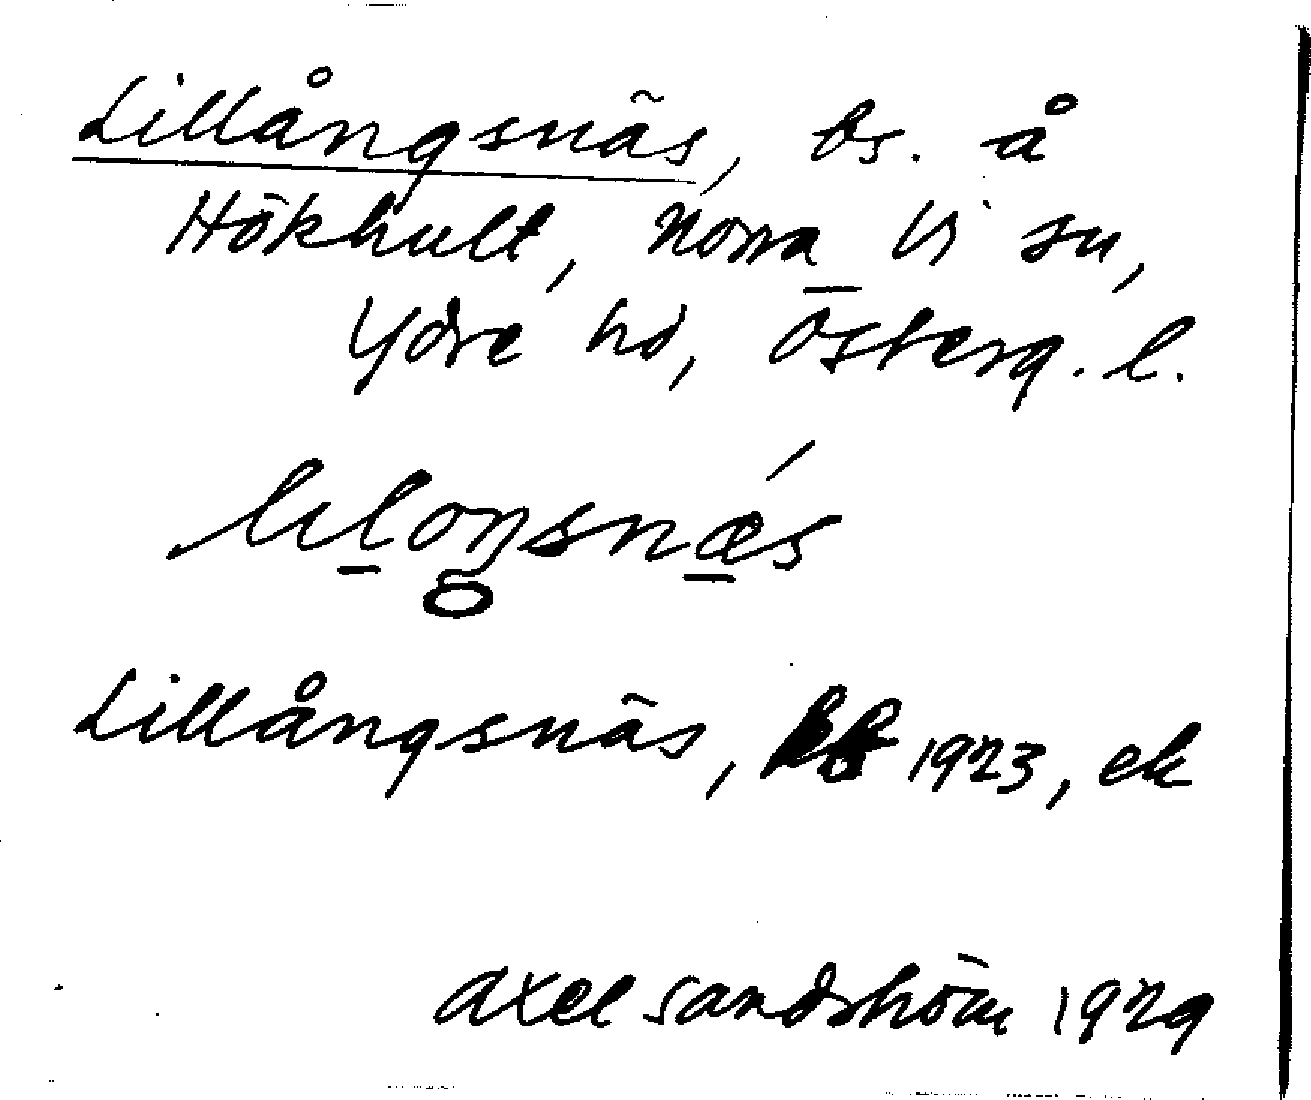 Lillångsnäs, bs. å
Hökhult, Norra Vi sn,
Ydre hd, Österg. l.
liloŋsnæ̱s
Lillångsnäs, 1923, ek
Axel Sandström 1929